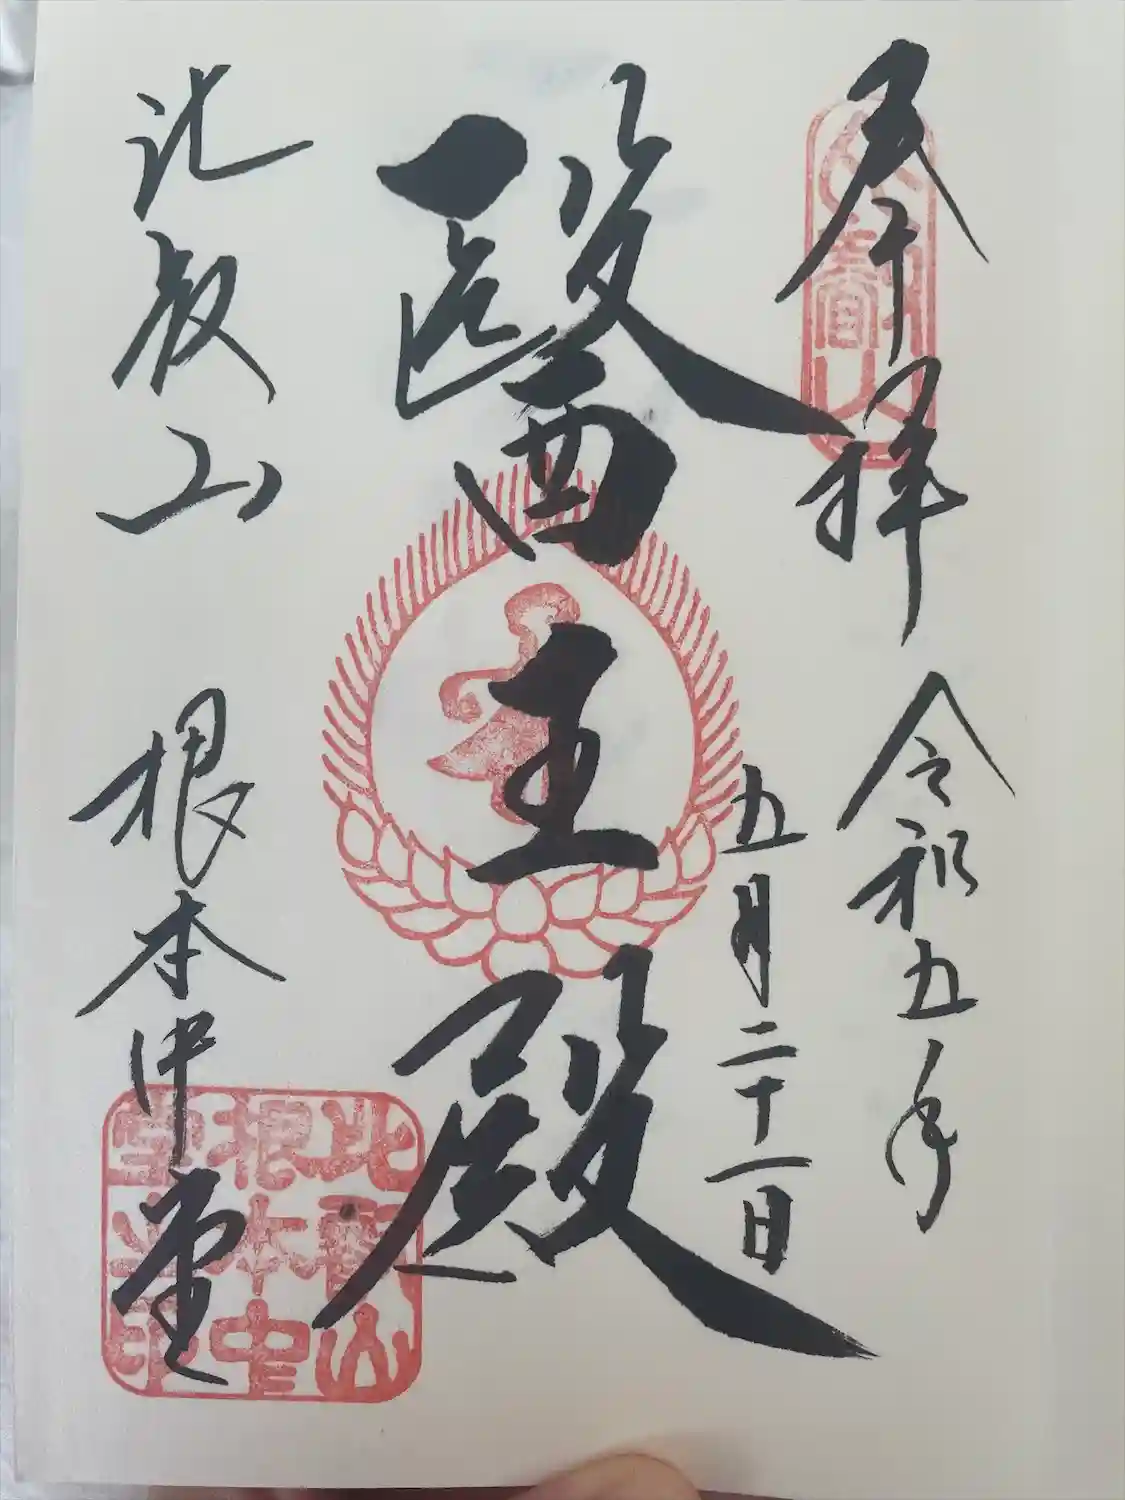 奉拝
令和五年
五月二十一日
醫王殿
比叡山
根本中堂
比叡山
根本中
堂之印